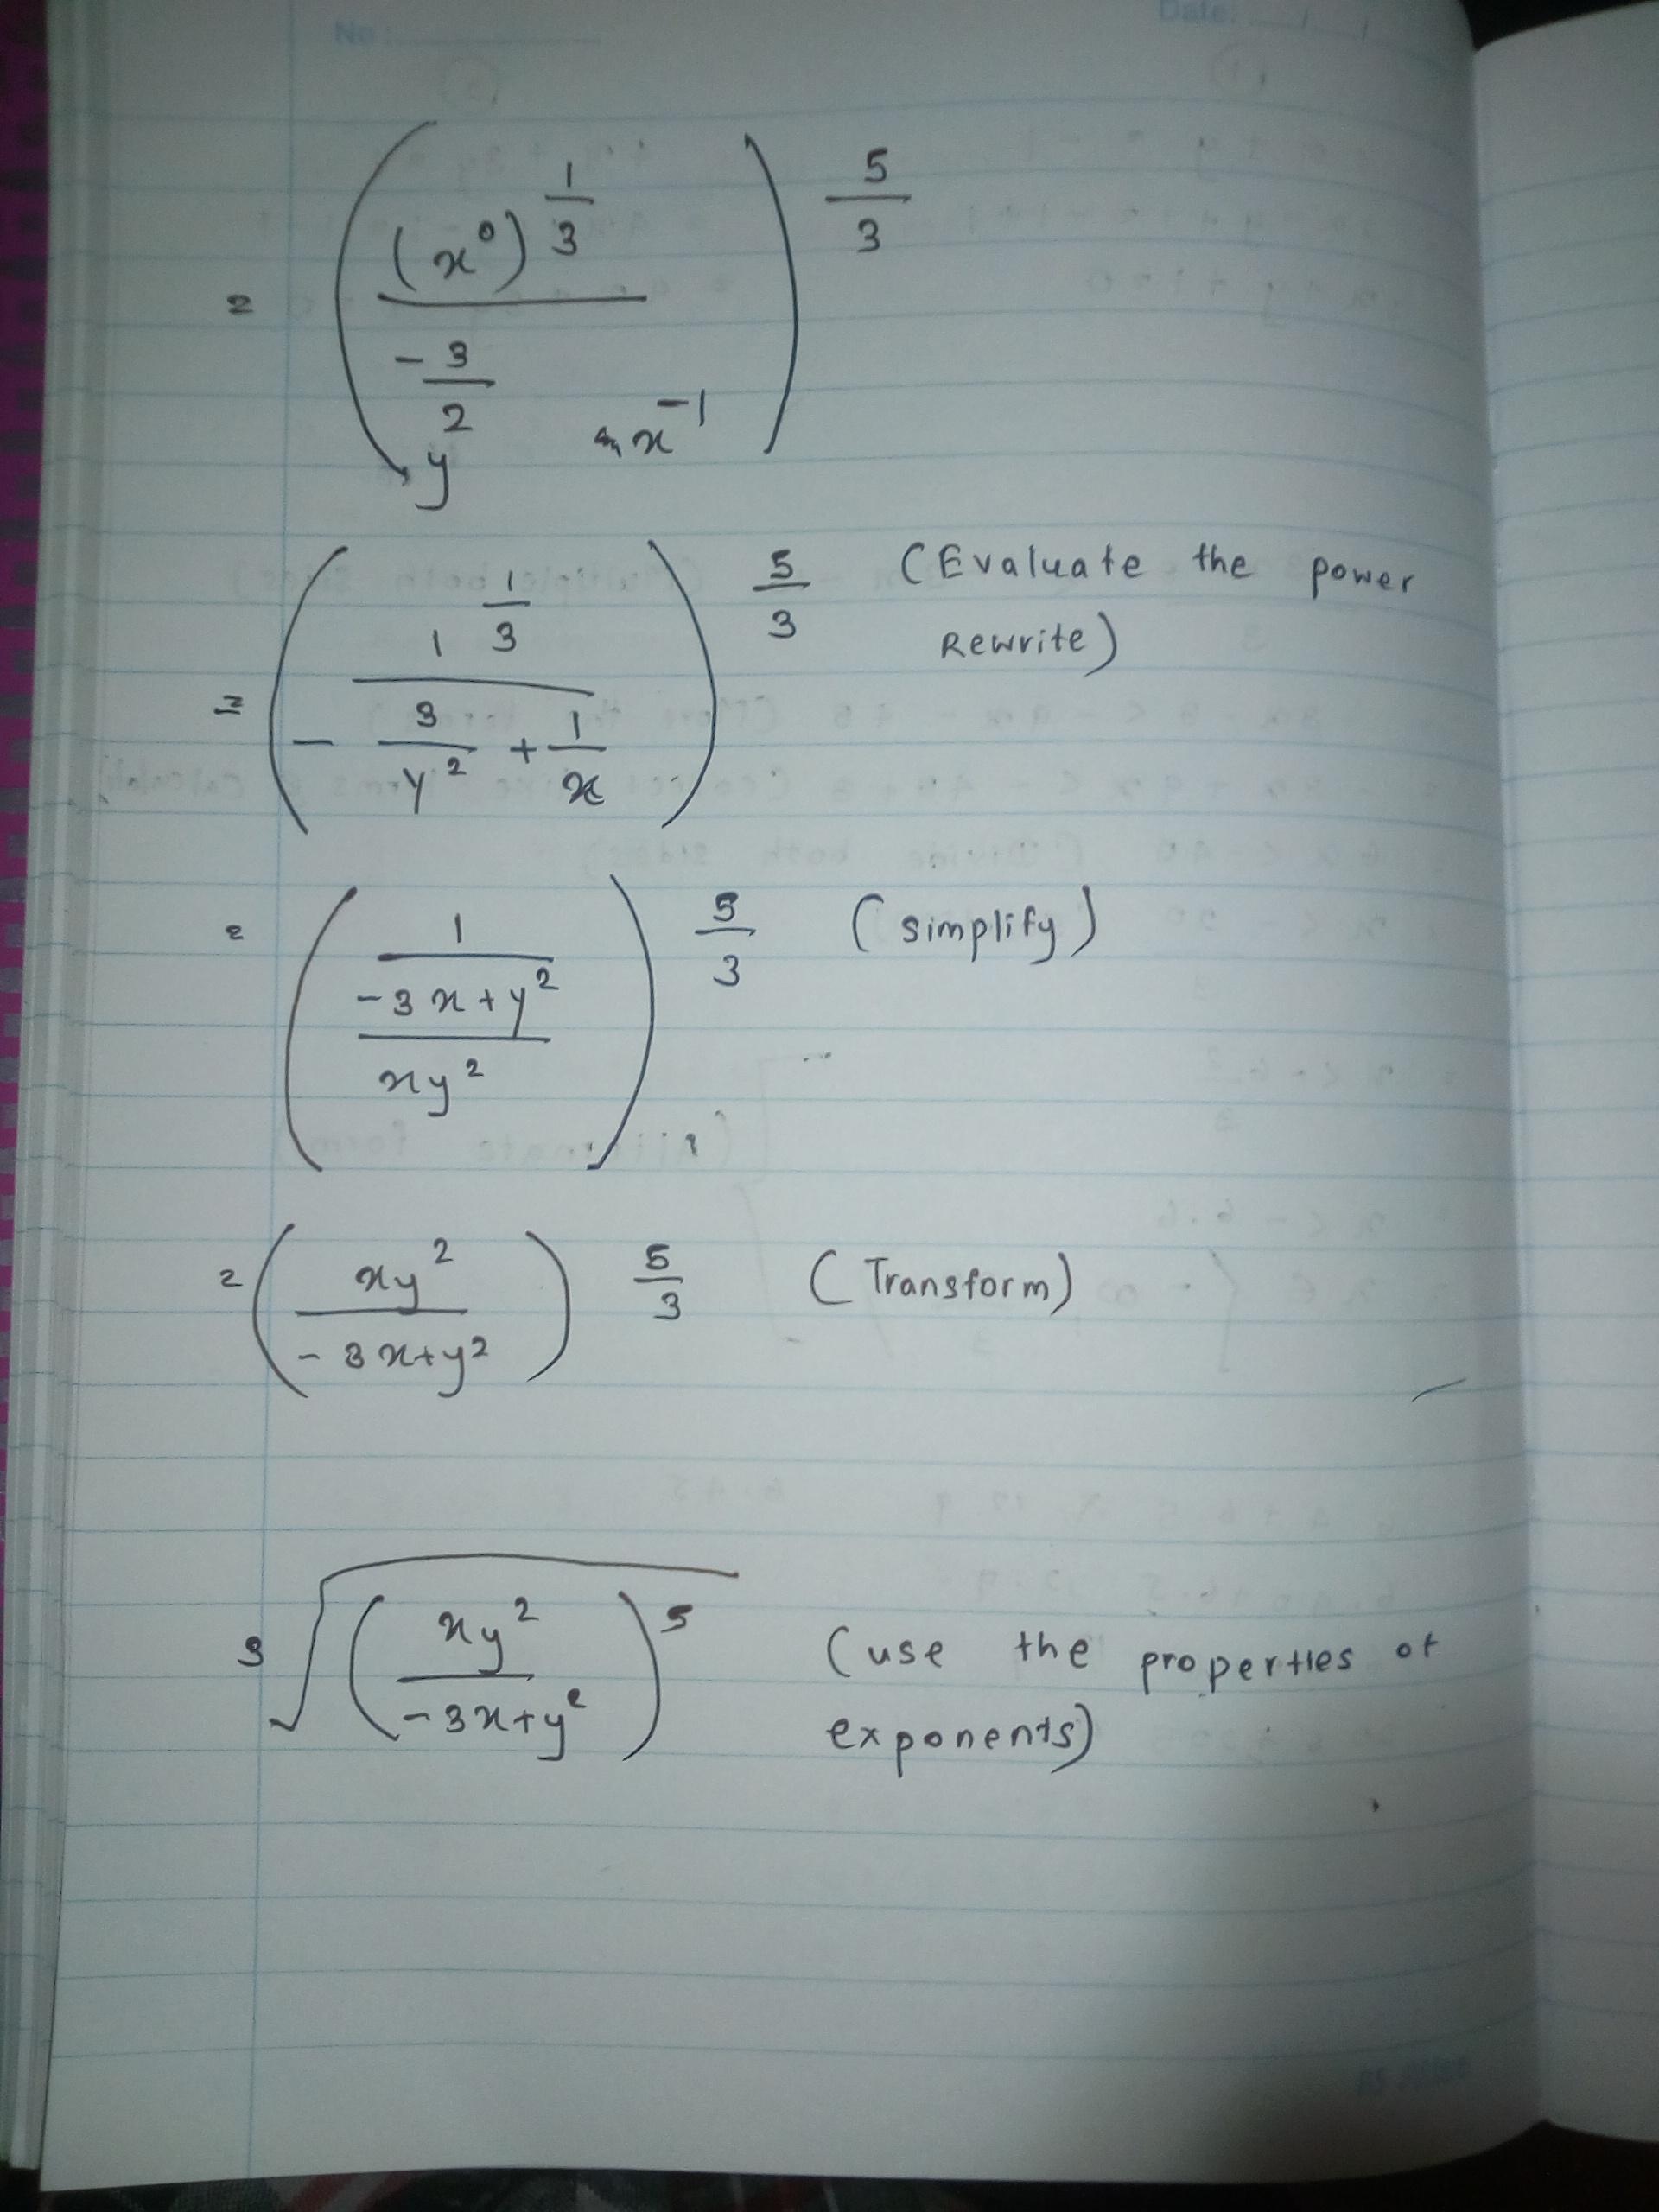 No:
Date:
= ( (x⁰)^(1/3) / -3/2 y x⁻¹ ) 5/3
= ( 1 1/3 / - 3/y² + 1/x ) 5/3 (Evaluate the power
Rewrite)
= ( 1 / -3x+y² / xy² ) 5/3 (simplify)
= ( xy² / -3x+y² ) 5/3 (Transform)
3√( xy² / -3x+y² )⁵ (use the properties of
exponents)